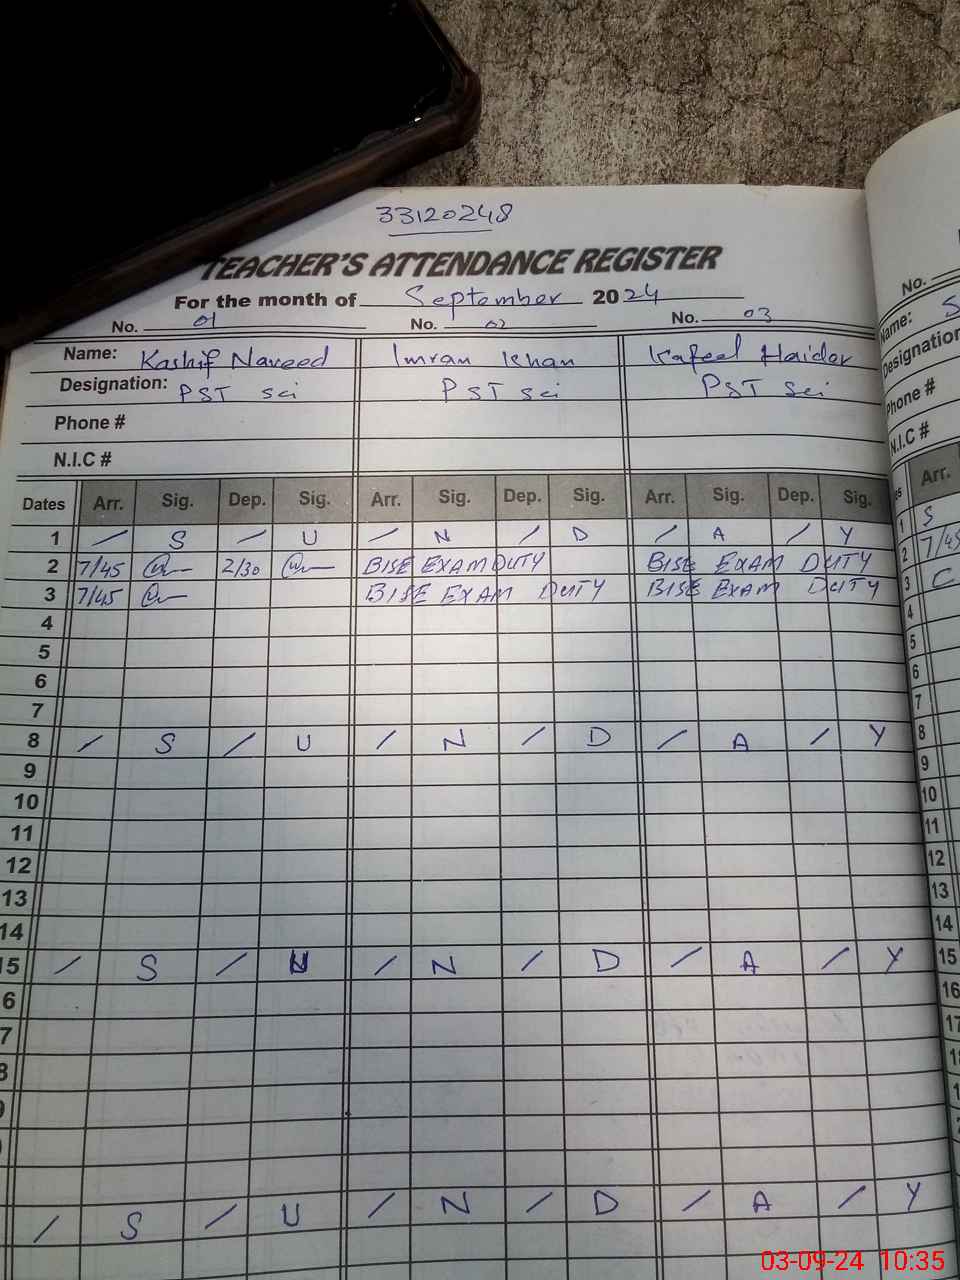 33120248
TEACHER'S ATTENDANCE REGISTER
For the month of September 2024
No. 01 No. 02 No. 03 No.
Name: Kashif Naveed Imran Khan Kafeel Haider Name: S
Designation: PST sci PST sci PST sci Designation
Phone # Phone #
N.I.C # N.I.C #
Dates Arr. Sig. Dep. Sig. Arr. Sig. Dep. Sig. Arr. Sig. Dep. Sig. Arr.
1 / S / U / N / D / A / Y 1 S
2 7/45 2/30 BISE EXAM DUTY BISE EXAM DUTY 2 7/45
3 7/45 BISE EXAM DUTY BISE EXAM DUTY 3 C
4 4
5 5
6 6
7 7
8 / S / U / N / D / A / Y 8
9 9
10 10
11 11
12 12
13 13
14 14
15 / S / U / N / D / A / Y 15
6 16
7 17
8
9
/ S / U / N / D / A / Y
03-09-24 10:35